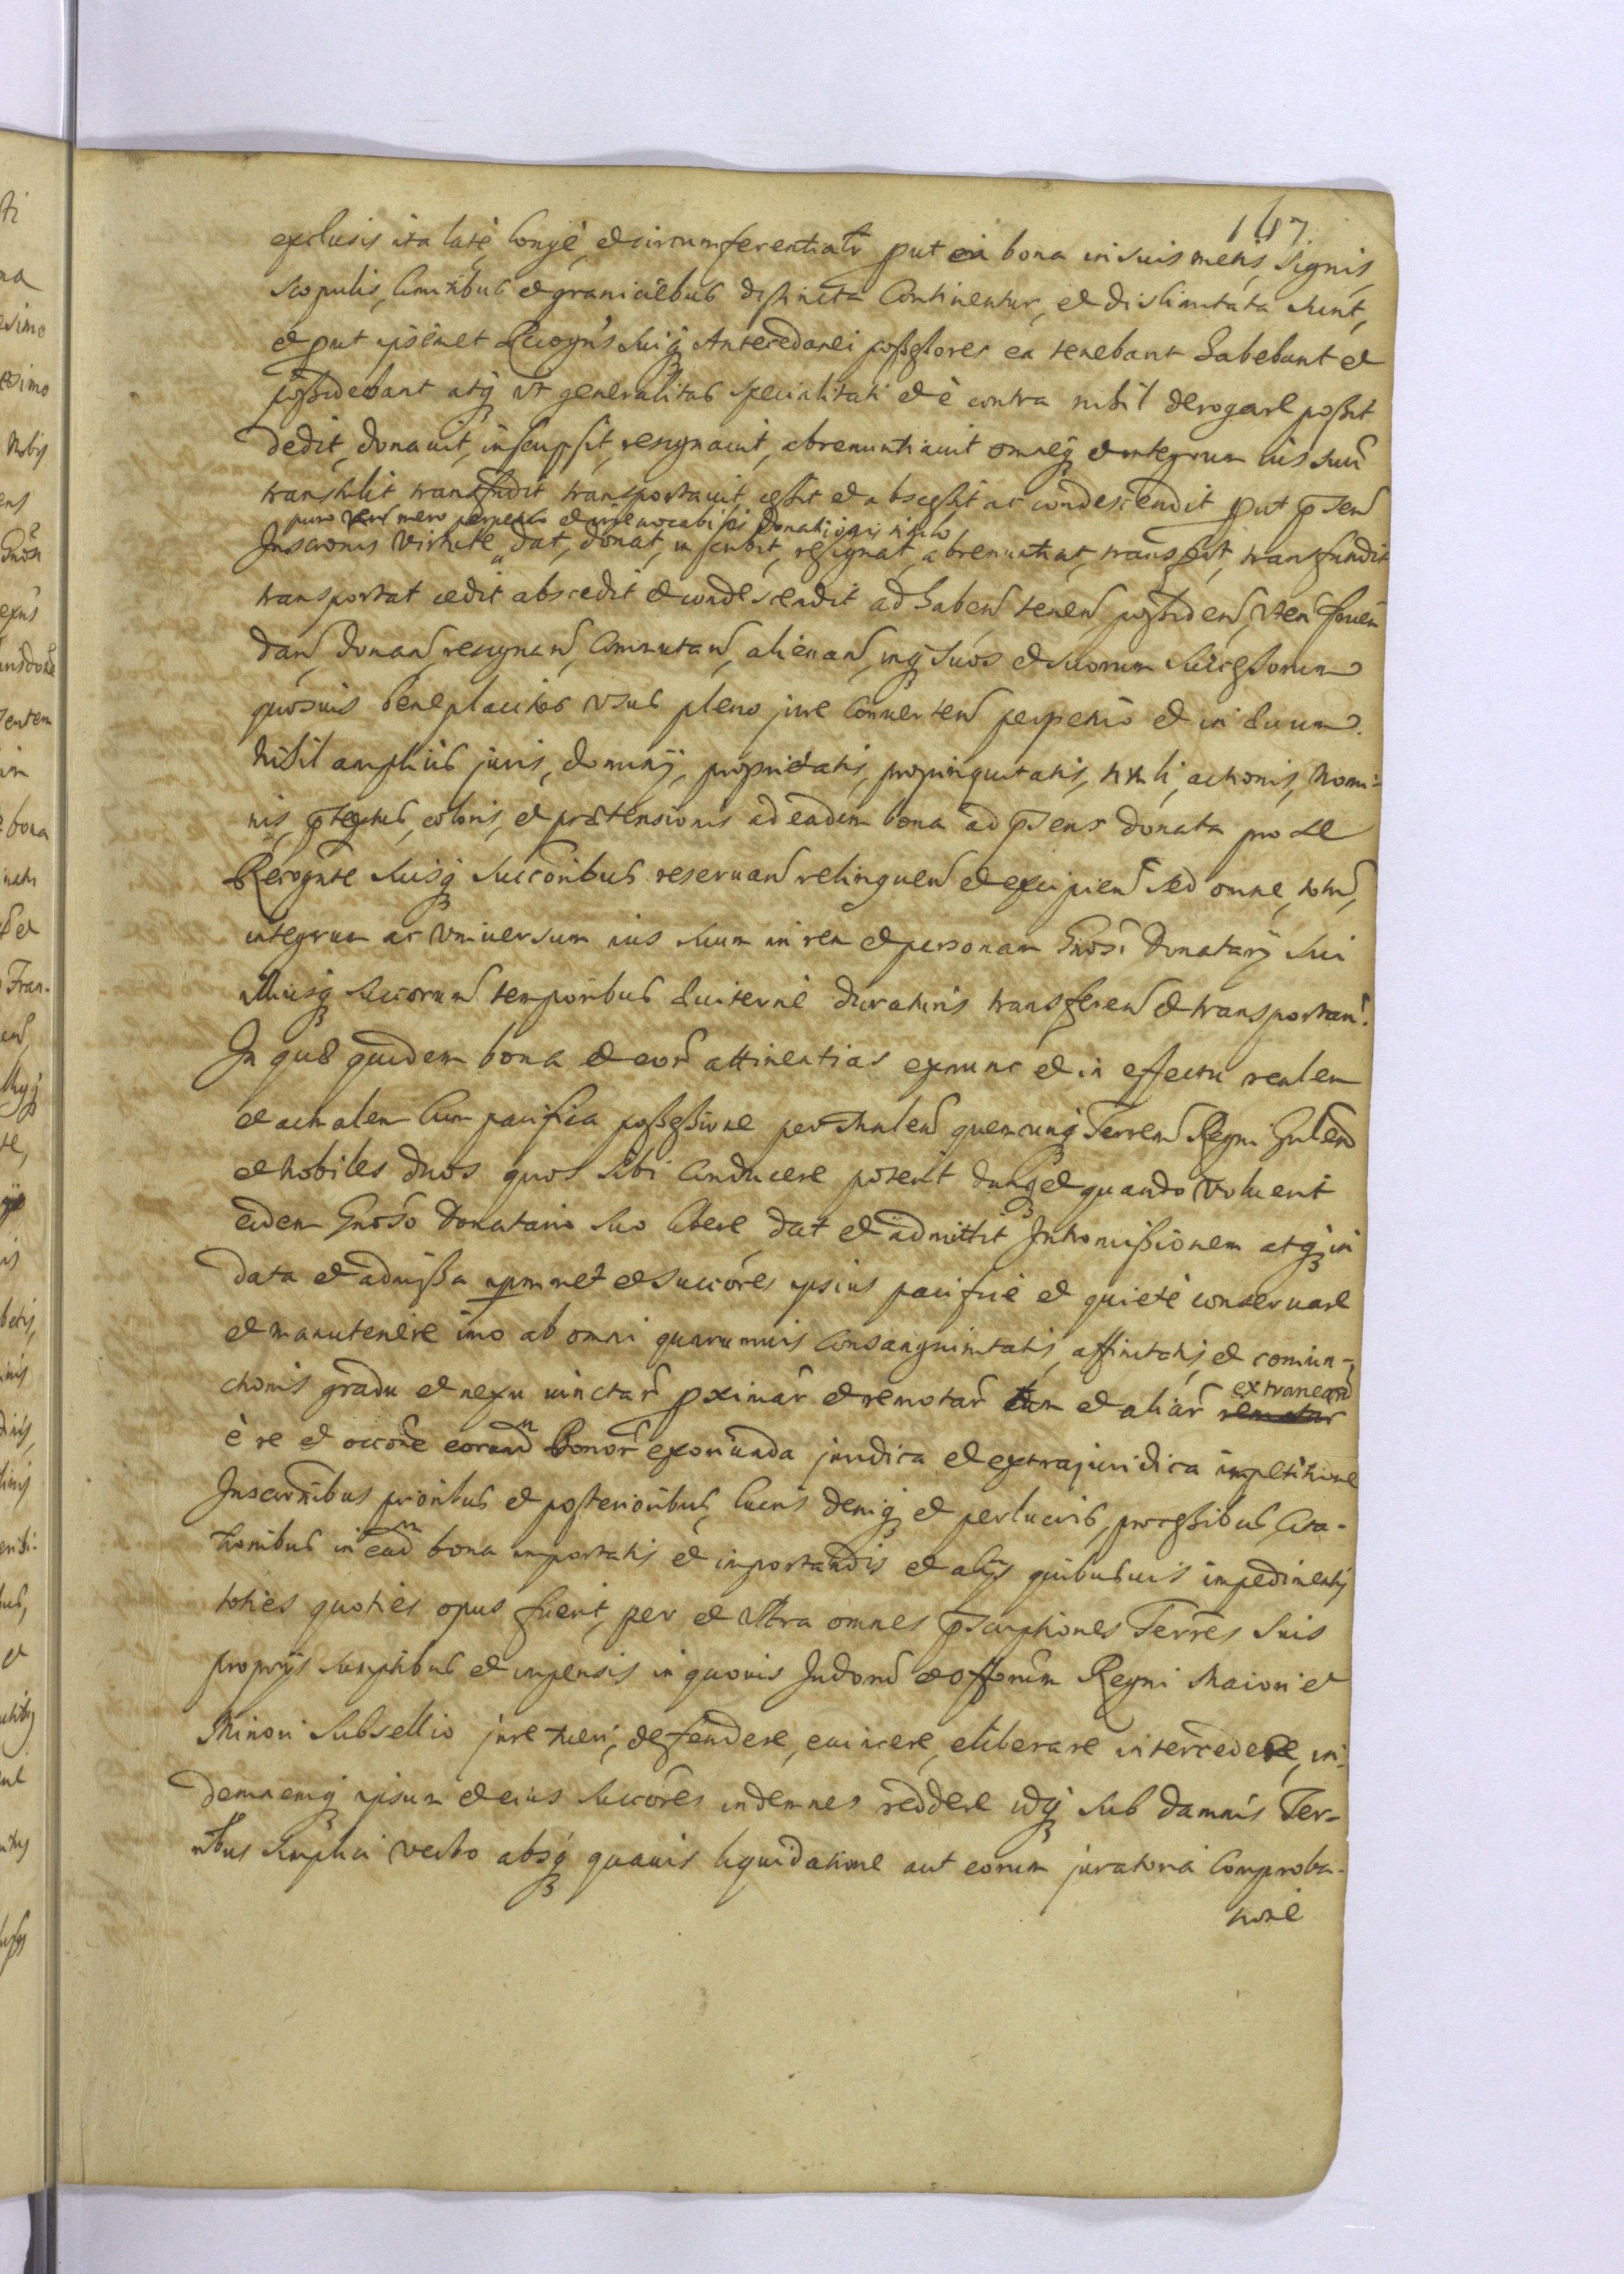 147
exclusis ita latè, longè, et circumferentialr put ea bona in suis metis, signis,
scopulis, limitibus et graniciebus distincta continentur, et dislimitata sunt,
et put ipsemet Recogns suiq Antecedanei possessores ea tenebant habebant et
possidebant atq vt generalitas specialitati et è contra nihil derogare possit
dedit, donauit, inscripsit, resignauit, abrenuntiauit omneq et integrum ius suu
transtulit transfudit transportauit cessit et abscessit ac condescendit put psen
puro mero perpetuo et irreuocabilis Donationis titulo
Inscronis virtute dat, donat, inscribit, resignat, abrenuntiat, transfert, transfundit
transportat cedit abscedit et condescendit ad haben tenen possiden, vten fruen
dan, donan, resignan, commutan, alienan, inq suos et suorum successorum
quosuis beneplacitos vsus pleno jure conuerten perpetuò et in æuum.
Nihil ampliùs juris, dominij, proprietatis, propinquitatis, tituli, actionis, nomi-
nis, ptextus, coloris, et prætensionis ad eadem bona ad psens donata pro se
Recognte suisq succoribus reseruan relinquen et excipien sed omne, totu,
integrum ac vniuersum ius suum in rem et personam Gnosi Donatarij sui
illiusq succorum temporibus æuiternè duraturis transferen et transportan.
In quæ quidem bona et eor attinentias exnunc et in effectu realem
et actualem cum pacifica possessione per Minlem quemcunq Terrem Regni Gnlem
et nobiles duos quos sibi conducere poterit dumq et quando voluerit
eidem Gnoso Donatario suo libere dat et admittit Intromissionem atq in
data et admissa ipmmet et succores ipsius pacificè et quietè conseruare
et manutenere imo ab omni quarumuis consanguinitatis, affinitatis, et coniun-
ctionis gradu et nexu iunctar pximar et remotar tum et aliar extranear
è re et occone eorundm Bonor exoriunda juridica et extrajuridica impetitione
Inscronibus prioribus et posterioribus, lucris deniq et perlucris, processibus, cita-
tionibus in eadm bona importatis et importandis et alijs quibusuis impedimentis
toties quoties opus fuerit, per et vltra omnes pscriptiones Terres suis
proprijs sumptibus et impensis in quouis Judorū et offorum Regni maiori et
minori subsellio jure tueri, defendere, euincere, eliberare intercedere, in-
demnemq ipsum et eius succores indemnes reddere idq sub damnis Ter-
ribus simplici verbo absq quauis liquidatione aut eorum juratoria comproba-
tione